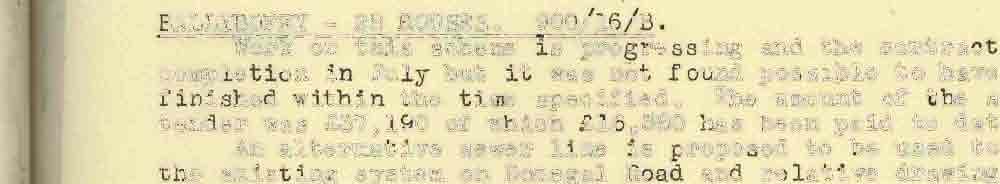 BALLYBOFEY - 28 HOUSES. 900/16/B.
Work on this scheme is progressing and the contract
completion in July but it was not found possible to have
finished within the time specified. The amount of the
tender was £37,190 of which has been paid to dat
An alternative sewer line is proposed to be used to
the existing system on Donegal Road and relative drawing